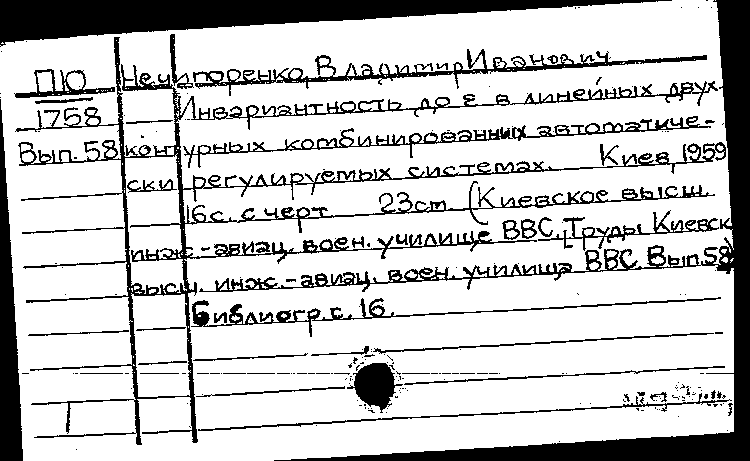 ПЮ Нечипоренко, Владимир Иванович
1758 Инвариантность до ε в линейных двух-
Вып. 58 контурных комбинированных автоматиче-
ски регулируемых системах. Киев, 1959
16с. с черт 23см (Киевское высш.
инж.-авиац. воен. училище ВВС. [Труды Киевск
высш. инж.-авиац. воен. училища ВВС. Вып. 58)
Библиогр. с. 16.